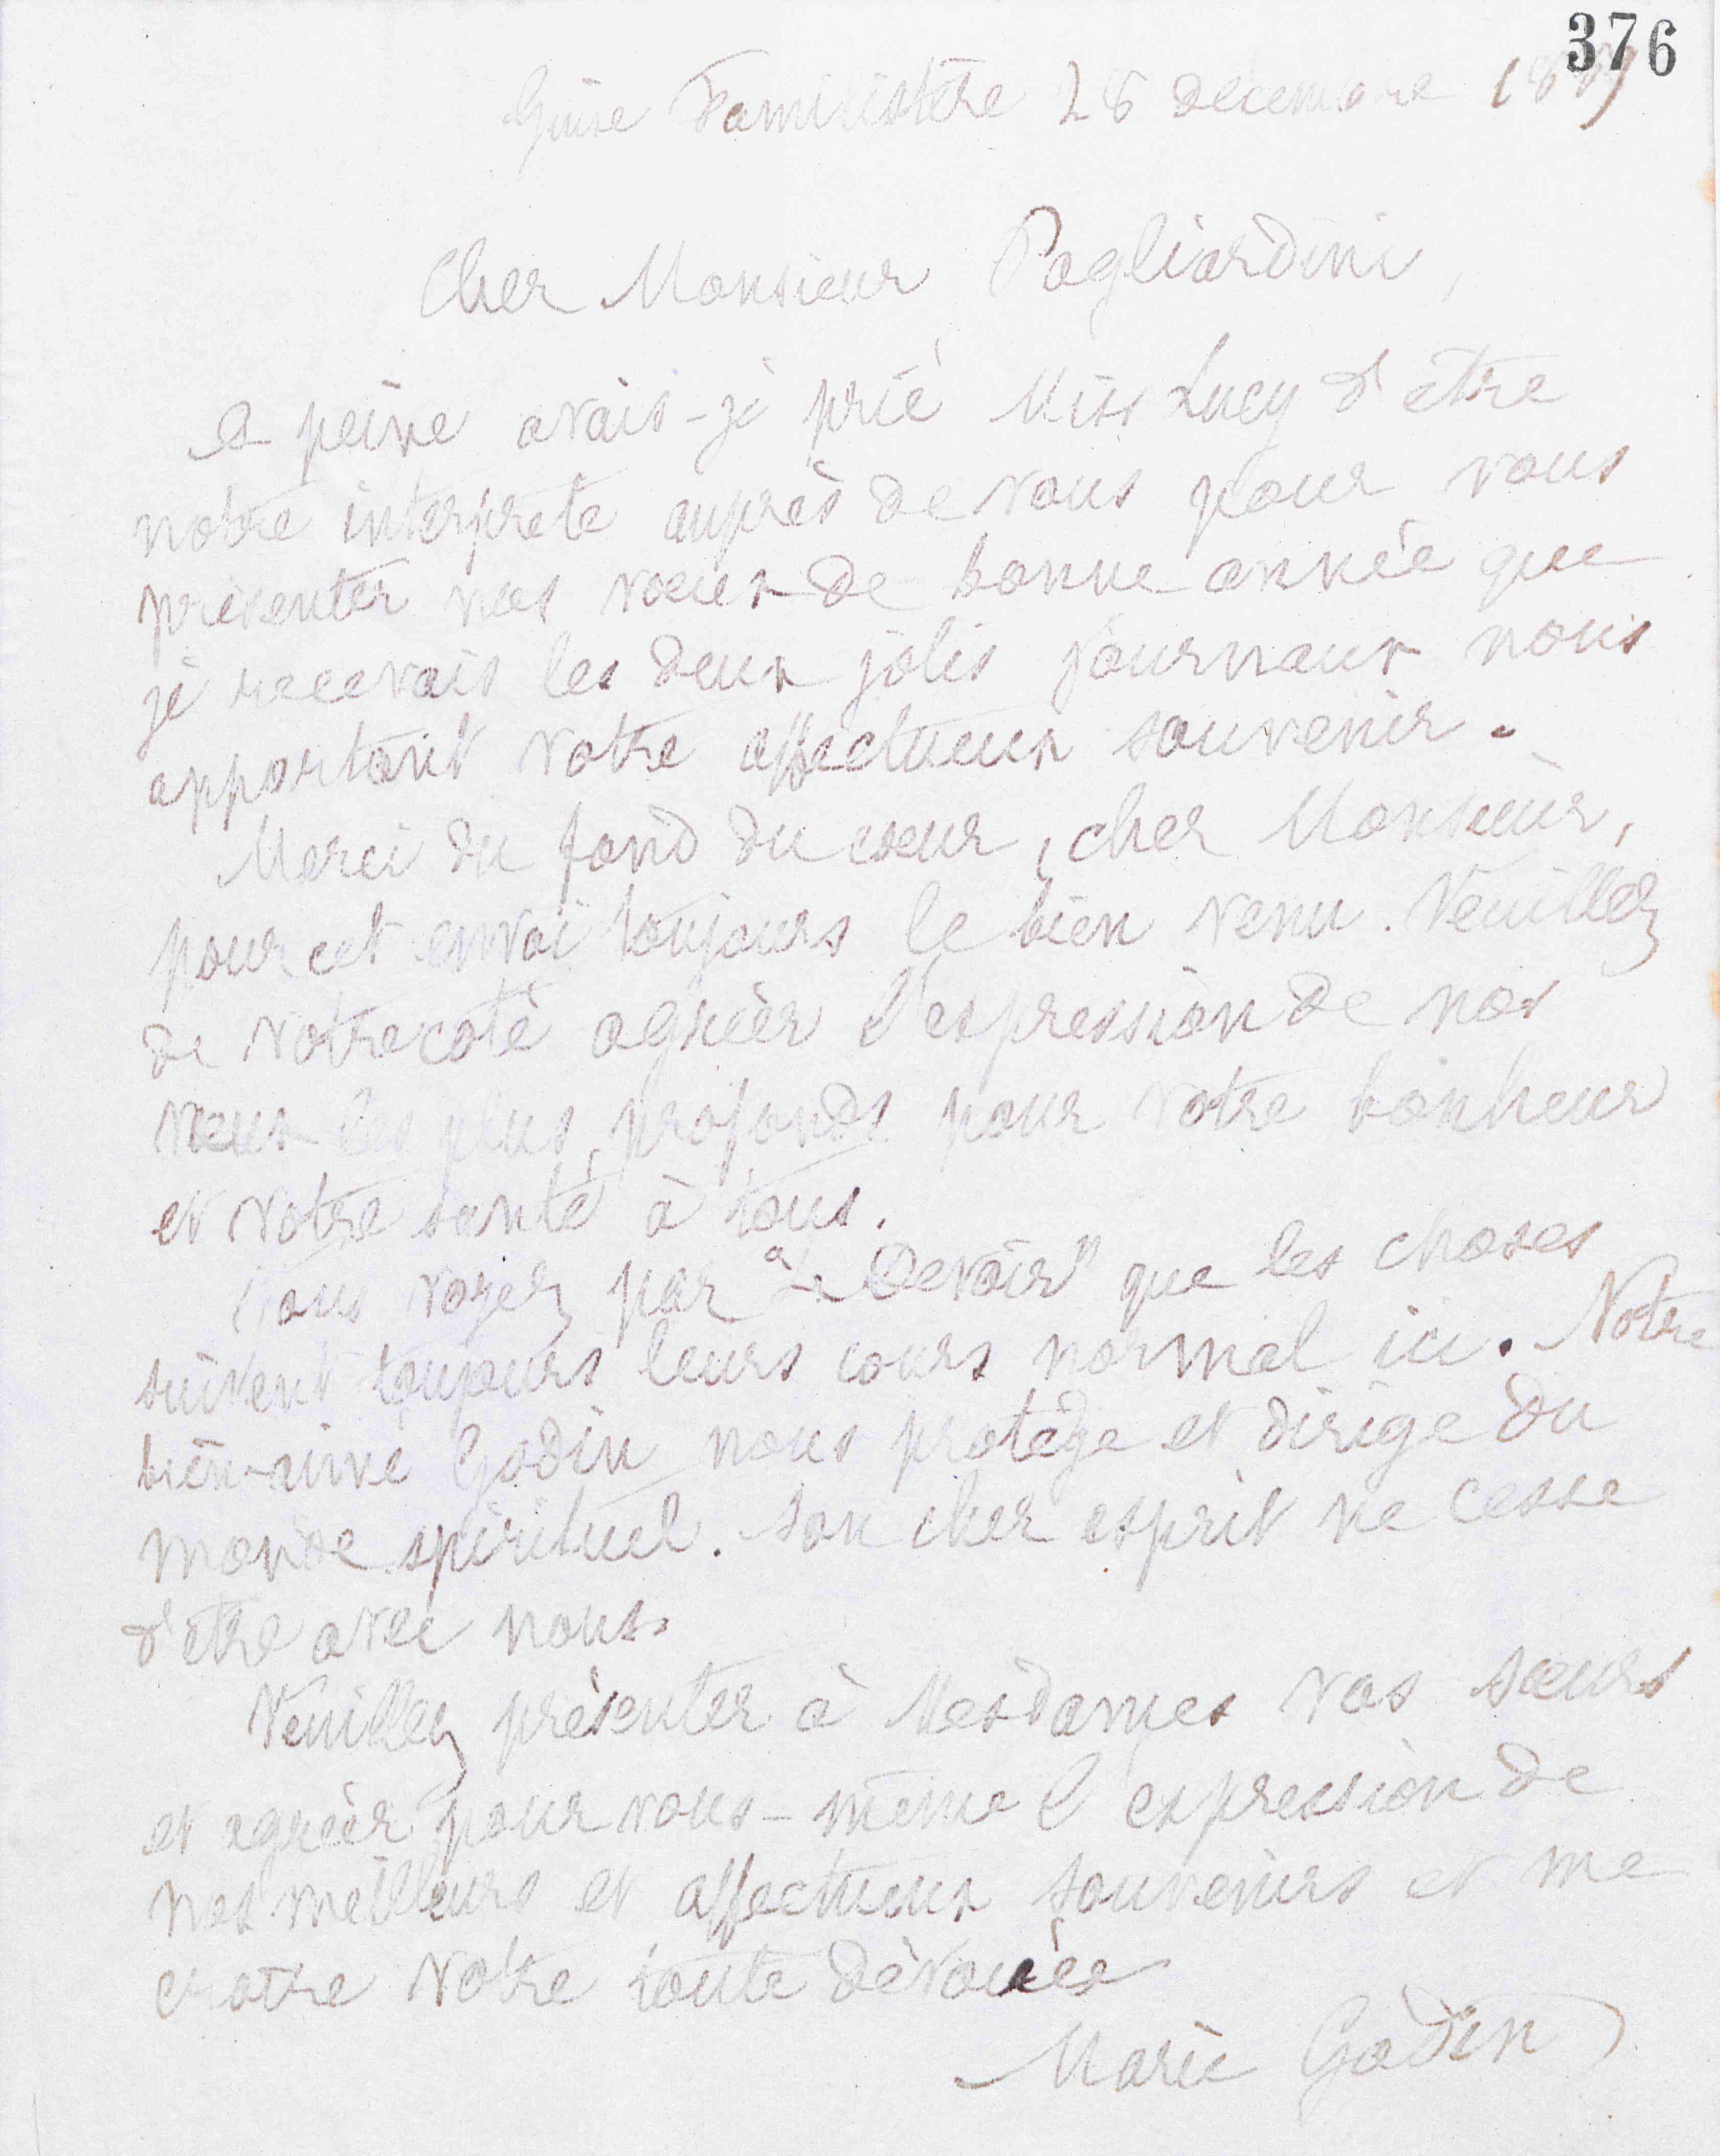 376
Guise Familistère 28 décembre
Cher Monsieur Pagliardini,
A peine avais-je prié Miss Lucy d'être
notre interprète auprès de vous pour vous
présenter nos vœux de bonne année que
je recevais les deux jolis journaux nous
apportant votre affectueux souvenir.
Merci du fond du cœur, cher Monsieur,
pour cet envoi toujours le bien venu. Veuillez
de votre coté agréer l'expression de nos
vœux les plus profonds pour votre bonheur
et votre santé à tous.
Vous voyez par "Le Devoir" que les choses
suivent toujours leurs cours normal ici. Notre
bien-aimé Godin nous protège et dirige du
monde spirituel. Son cher esprit ne cesse
d'être avec nous.
Veuillez présenter à Mesdames vos sœurs
et agréer pour vous-même l'expression de
nos meilleurs et affectueux souvenirs et me
croire votre toute dévouée
Marie Godin